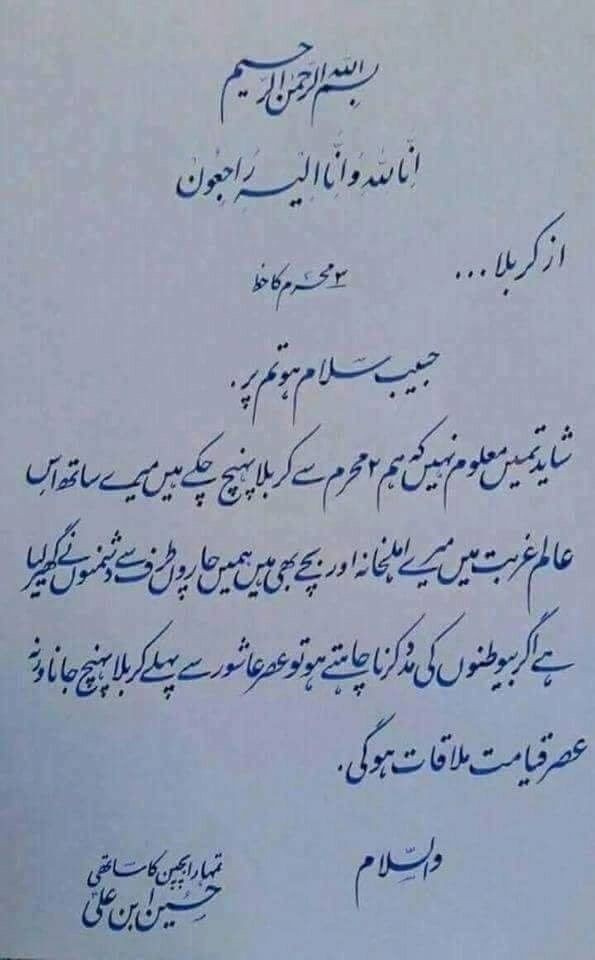 بسم اللہ الرحمٰن الرحیم
اِنَّا لِلّٰهِ وَاِنَّا اِلَیْہِ رَاجِعُوْنَ
از کربلا...
۳ محرم کا خط
حبیب سلام ہو تم پر.
شاید تمیں معلوم نہیں کہ ہم ۲ محرم سے کربلا پہنچ چکے ہیں میرے ساتھ اس
عالم غربت میں میرے اہلخانہ اور بچے بھی ہیں ہمیں چاروں طرف سے دشمنوں نے گھیر لیا
ہے اگر بیوطنوں کی مدد کرنا چاہتے ہو تو عصر عاشور سے پہلے کربلا پہنچ جانا ورنہ
عصر قیامت ملاقات ہوگی.
والسّلام
تمہارا بچپن کا ساتھی
حسین ابن علیؑ